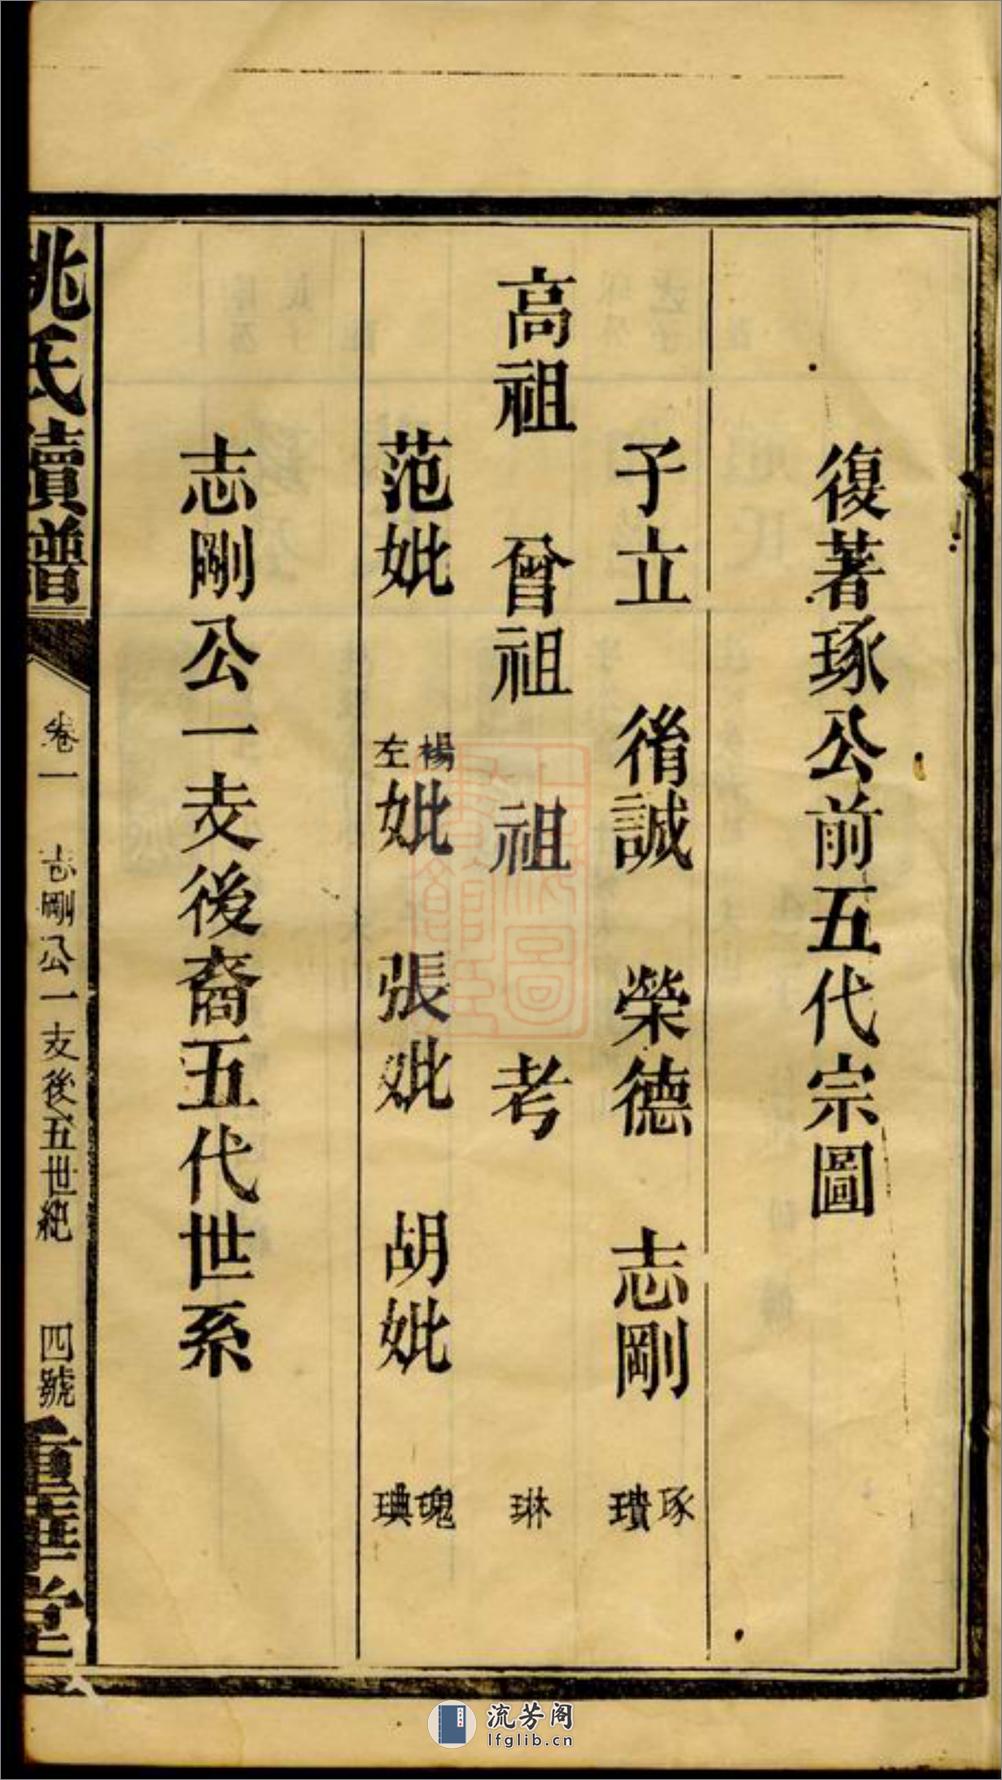 復著琢公前五代宗圖
子立 脩誠 榮德 志剛 琢 璝
高祖 曾祖 祖 考 琳
范妣 楊左妣 張妣 胡妣 瑰 琠
志剛公一支後裔五代世系
姚氏續譜 卷一 志剛公一支後五世紀 四號 重華堂
流芳阁
lfglib.cn